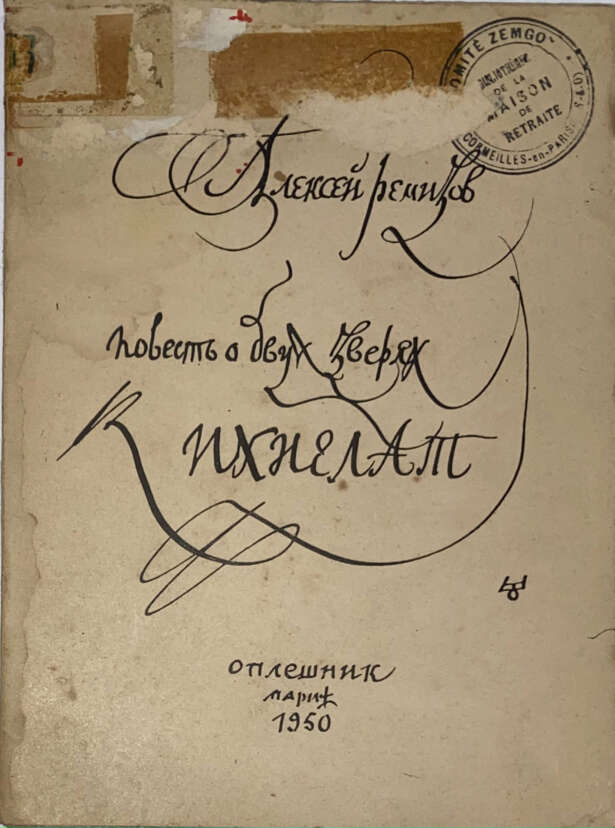 COMITÉ ZEMGOR
BIBLIOTHÈQUE
DE LA
MAISON
DE
RETRAITE
CORMEILLES-en-PARISIS
Алексей Ремизов
повесть о двух зверях
ИХНЕЛАТ
оплешник
париж
1950